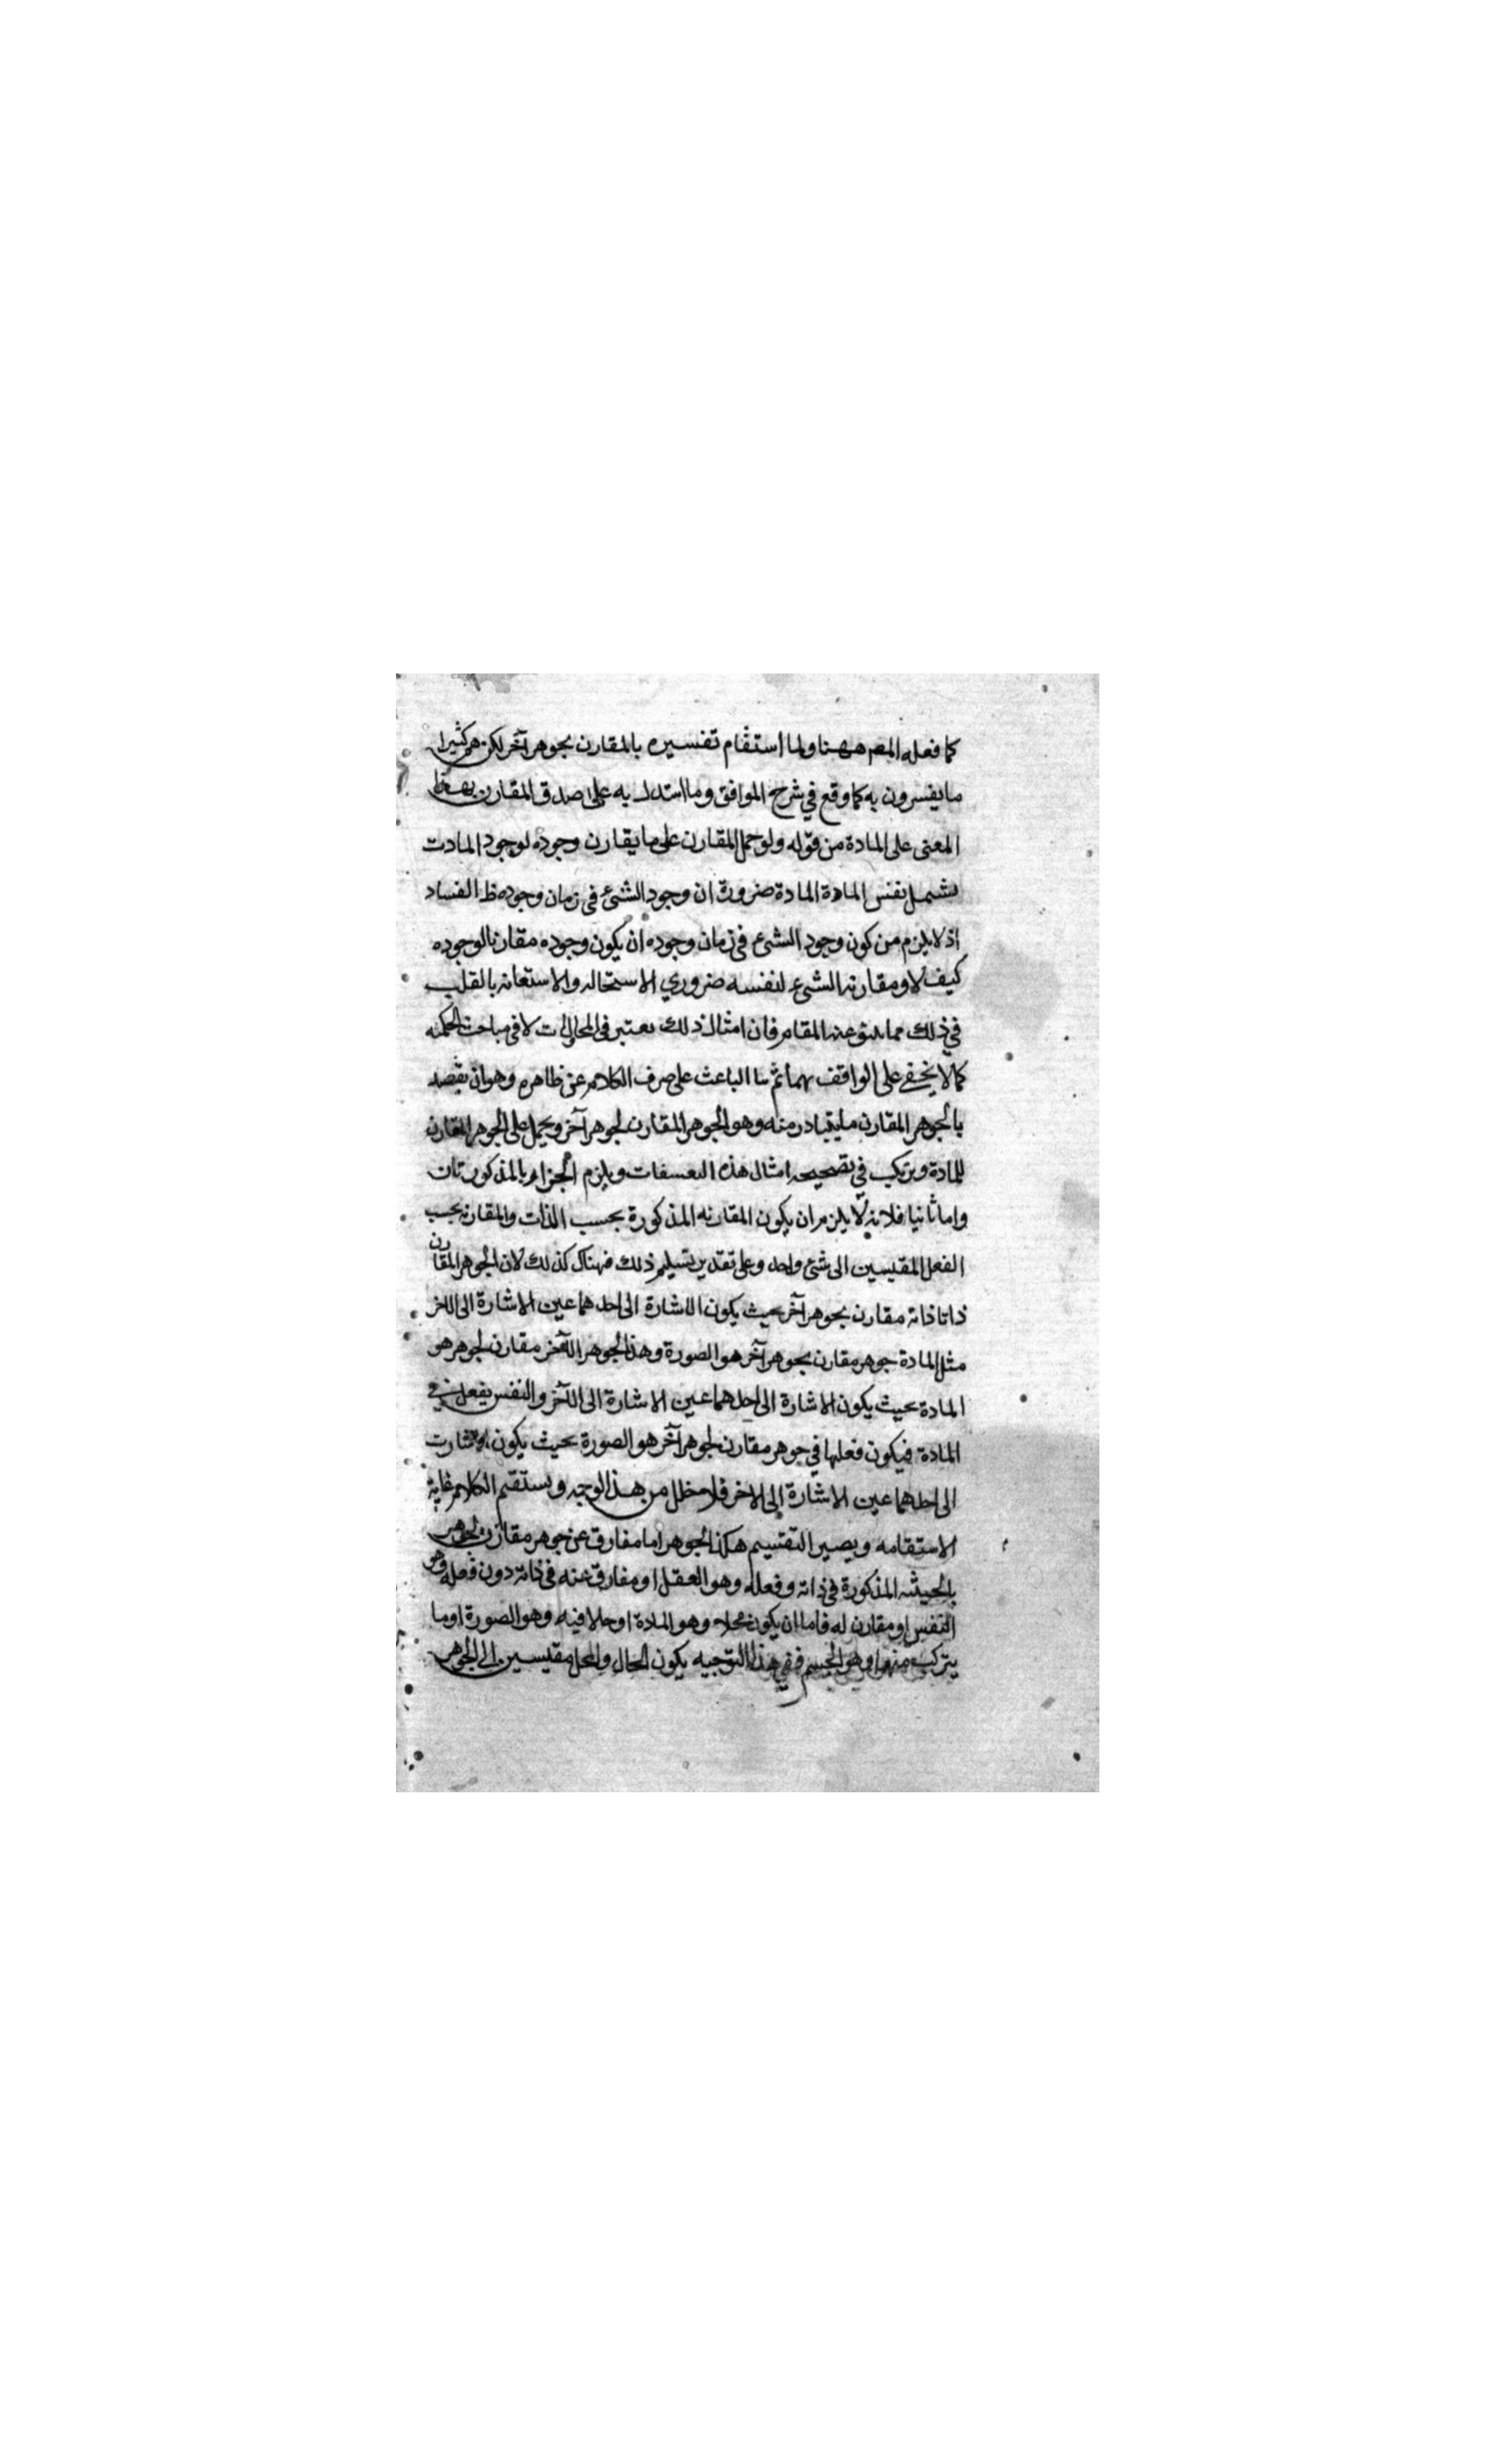 كما فعله المصم ههنا ولما استقام تفسيره بالمقارن بجوهر آخر لكن هم كثيرا
ما يفسرون به كما وقع في شرح المواقف وما استدل به على صدق المقارن بهذا
المعنى على المادة من قوله ولو حمل المقارن على ما يقارن وجوده لوجود المادت
يشمل نفس المادة المادة ضرورة ان وجود الشئ في زمان وجوده ظ الفساد
اذ لا يلزم من كون وجود الشئ في زمان وجوده ان يكون وجوده مقارنا لوجوده
كيف لا ومقارنه الشئ لنفسه ضروري الاستحاله والاستعانه بالقلب
في ذلك مما عنه المقام فان امثال ذلك يعتبر في لا في مباحث الحكمه
كما لا يخفى على الواقف بهما ثم ما الباعث على صرف الكلام عن ظاهره وهو ان يقصد
بالجوهر المقارن ما يتبادر منه وهو الجوهر المقارن لجوهر آخر ويحمل على الجوهر المقارن
للمادة ويرتكب في تصحيحه امثال هذه التعسفات ويلزم بالمذكور تان
واما ثانيا فلانه لا يلزم ان يكون المقارنه المذكورة بحسب الذات والمقارنه بحسب
الفعل المقيسين الى شئ واحد وعلى تقدير تسليم ذلك فهناك كذلك لان الجوهر المقارن
ذاتا ذاته مقارن بجوهر آخر بحيث يكون الاشارة الى احدهما عين الاشارة الى الاخر
مثل المادة جوهر مقارن بجوهر آخر هو الصورة وهذا الجوهر الآخر مقارن لجوهر هو
المادة بحيث يكون الاشارة الى احدهما عين الاشارة الى الآخر والنفس يفعل في
المادة فيكون فعلها في جوهر مقارن لجوهر آخر هو الصورة بحيث يكون الاشارت
الى احدهما عين الاشارة الى الاخر فلا خلل من هذا الوجه ويستقيم الكلام غاية
الاستقامه ويصير التقسيم هكذا الجوهر اما مفارق عن جوهر مقارن لجوهر
بالحيثيه المذكورة في ذاته وفعله وهو العقل او مفارق عنه في ذاته دون فعله وهو
النفس او مقارن له فاما ان يكون محلا وهو المادة او حالا فيه وهو الصورة او ما
يتركب منهما وهو الجسم ففي هذا التوجيه يكون الحال والمحل مقيسين الى الجوهر